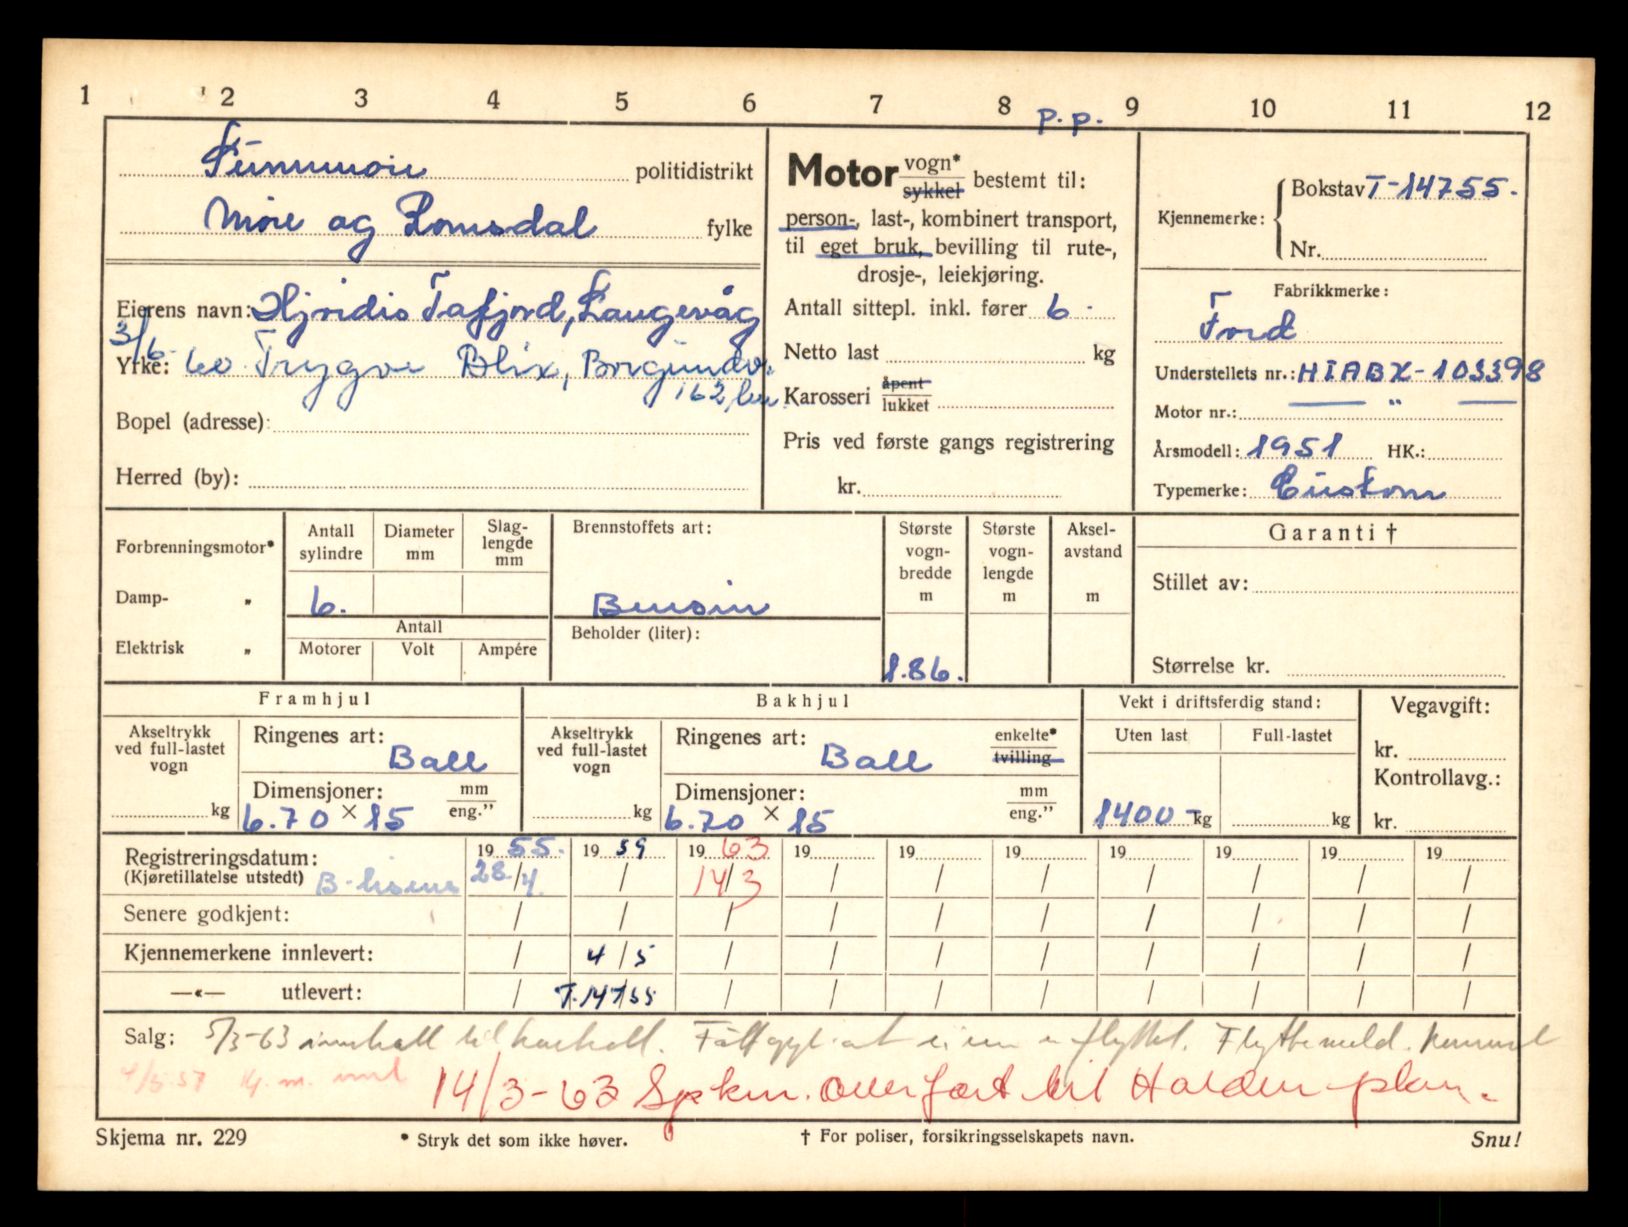 1 2 3 4 5 6 7 8 9 10 11 12
p.p.
Sunnmøre politidistrikt
Møre og Romsdal fylke
Eierens navn: Hjørdis Tafjord, Langevåg
3/6-
Yrke: 60 Trygve Blix, Borgundv.
162,
Bopel (adresse):
Herred (by):
Motor vogn* sykkel bestemt til:
person-, last-, kombinert transport,
til eget bruk, bevilling til rute-,
drosje-, leiekjøring.
Antall sittepl. inkl. fører 6 -
Netto last kg
Karosseri åpent lukket
Pris ved første gangs registrering
kr.
Kjennemerke: Bokstav T-14755.
Nr.
Fabrikkmerke:
Ford
Understellets nr.: H1ABX-103398
Motor nr.: — " —
Årsmodell: 1951 HK.:
Typemerke: Custom
Forbrenningsmotor*
Damp- „
Elektrisk „
Antall sylindre
Diameter mm
Slag-lengde mm
6.
Antall
Motorer Volt Ampére
Brennstoffets art:
Bensin
Beholder (liter):
Største vogn-bredde m
1.86.
Største vogn-lengde m
Aksel-avstand m
Garanti †
Stillet av:
Størrelse kr.
Framhjul
Akseltrykk ved full-lastet vogn
kg
Ringenes art: Ball
Dimensjoner: mm eng.”
6.70 × 15
Bakhjul
Akseltrykk ved full-lastet vogn
kg
Ringenes art: Ball enkelte* tvilling
Dimensjoner: mm eng.”
6.70 × 15
Vekt i driftsferdig stand:
Uten last Full-lastet
1400 - kg kg
Vegavgift:
kr.
Kontrollavg.:
kr.
Registreringsdatum: 19 55. 19 59 19 63 19 19 19 19 19 19 19
(Kjøretillatelse utstedt) B-lisens 28/4. / 14/3 / / / / / / /
Senere godkjent: / / / / / / / / / /
Kjennemerkene innlevert: / 4/5 / / / / / / / /
—«— utlevert: / T.14755 / / / / / / / /
Salg: 5/3-63 innkalt til kontroll. er flyttet. Flyttemeld.
14/3-63 Spkm. overført til Halden pkm.
Skjema nr. 229
* Stryk det som ikke høver.
† For poliser, forsikringsselskapets navn.
Snu!